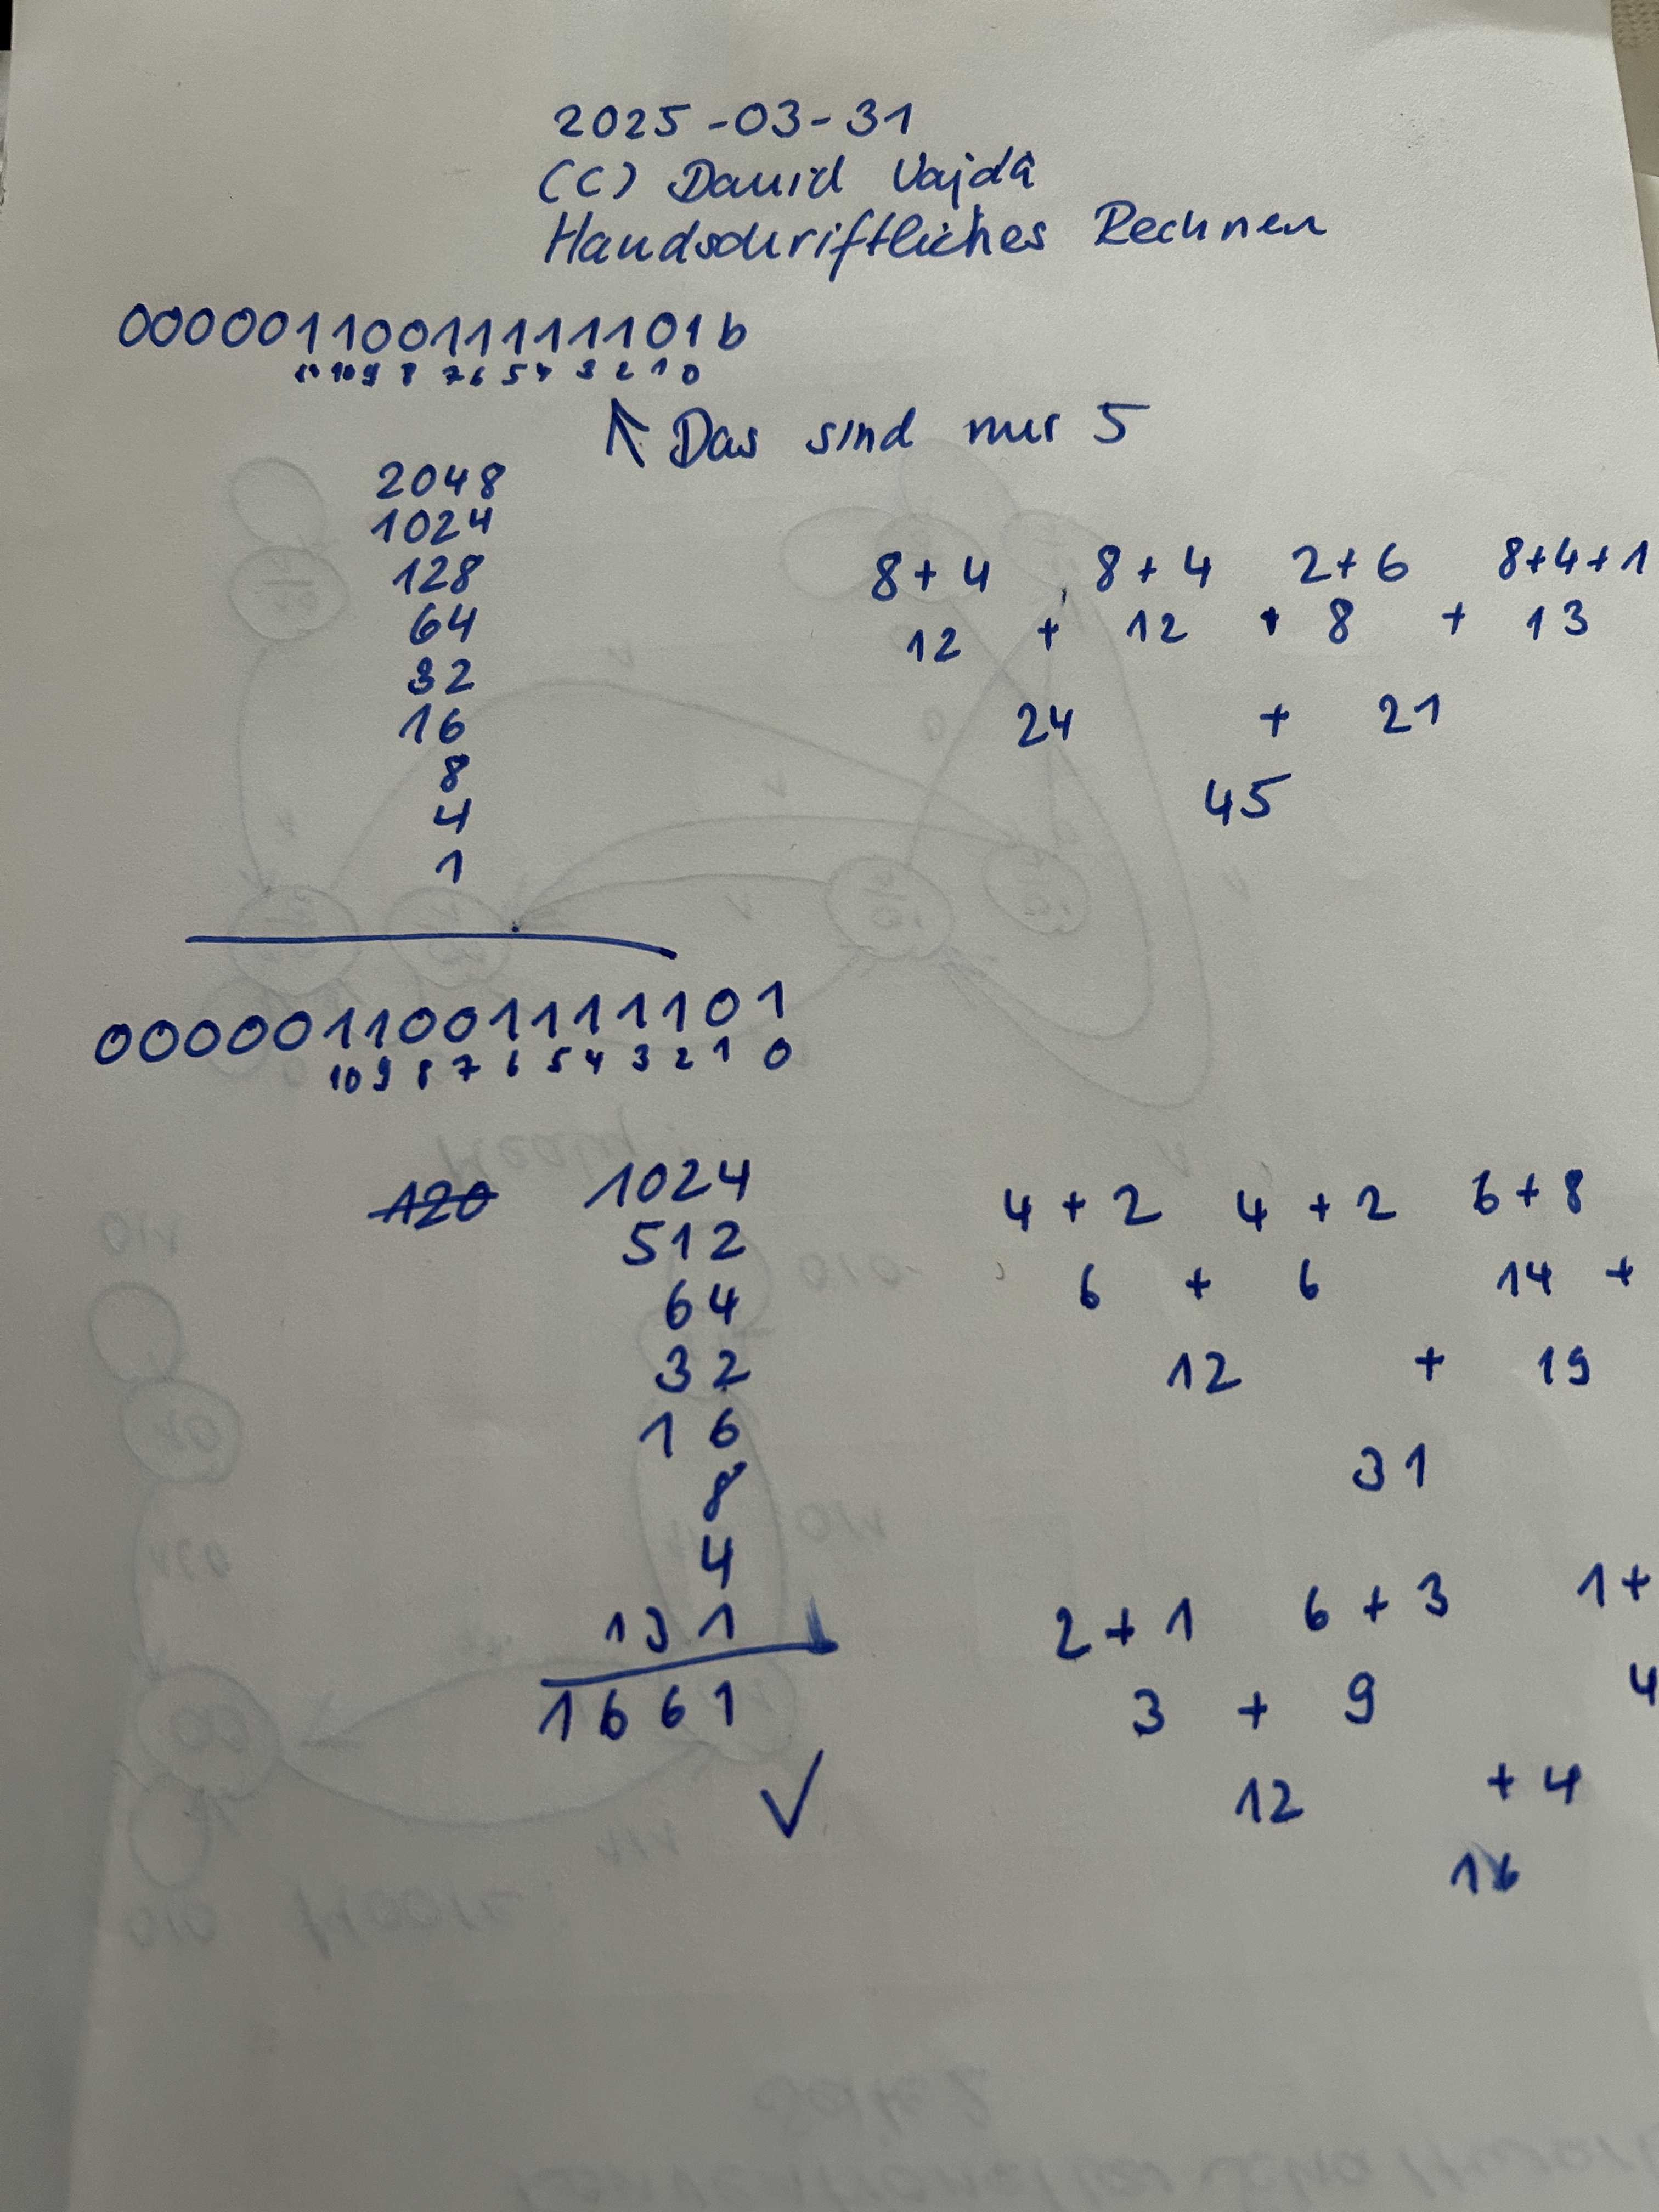 2025-03-31
(C) David Vajda
Handschriftliches Rechnen
00000110011111101b
11 10 9 8 7 6 5 4 3 2 1 0
↑ Das sind nur 5
2048
1024
128
64
32
16
8
4
1
8+4 8+4 2+6 8+4+1
12 + 12 + 8 + 13
24 + 21
45
0000011001111101
10 9 8 7 6 5 4 3 2 1 0
1024
512
64
32
16
8
4
131
1661
✓
4+2 4+2 6+8
6 + 6 14 +
12 + 19
31
2+1 6+3 1+
3 + 9 4
12 + 4
16